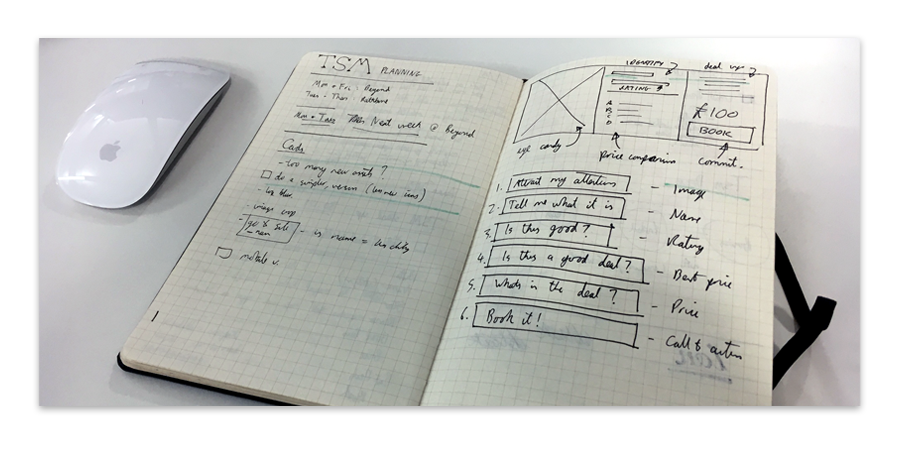 TSM PLANNING
Mon + Fri : Beyond
Tues - Thurs :
Mon + Tues Next week @ Beyond
Cards
- too many new assets ?
do a simpler version (less new icons)
- image crop
- is name =
mobile v.
IDENTITY ?
RATING ?
A
B
C
D
deal
£100
BOOK
eye candy
price comparison
commit.
1. Attract my attention - Image
2. Tell me what it is - Name
3. Is this good? - Rating
4. Is this a good deal? - Best price
5. What's in the deal? - Price
6. Book it! - Call to action